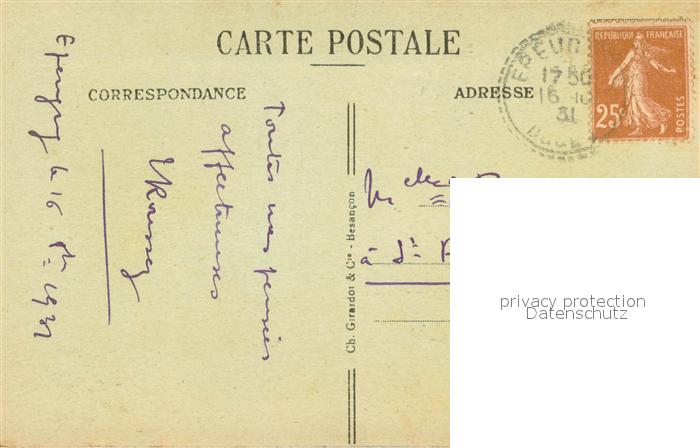 CARTE POSTALE
CORRESPONDANCE
ADRESSE
RÉPUBLIQUE FRANÇAISE
25c
POSTES
17 30
16 - 10
31
DOUBS
le 16 1931
Toutes mes pensées
affectueuses
Ch. Girardot & Cie - Besançon
M
à St
privacy protection
Datenschutz